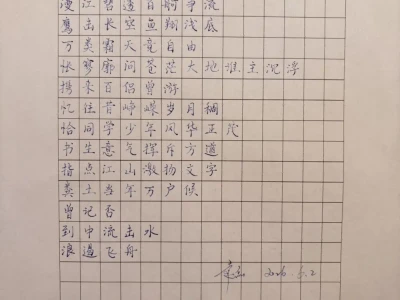 漫江碧透百舸争流
鹰击长空鱼翔浅底
万类霜天竞自由
怅寥廓问苍茫大地谁主沉浮
携来百侣曾游
忆往昔峥嵘岁月稠
恰同学少年风华正茂
书生意气挥斥方遒
指点江山激扬文字
粪土当年万户侯
曾记否
到中流击水
浪遏飞舟